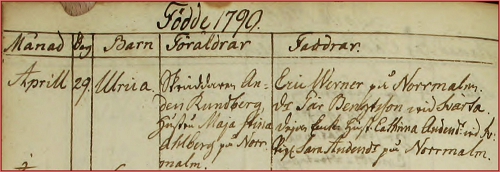 Födde 1790.
Månad Dag Barn Föräldrar Faddrar.
Aprill 29. Ulrica. Skräddaren An-
den Rundberg
hustru Maja Stina
Ahlberg på Norr-
malm.
Eric Werner på Norrmalm.
Pär Bengtsson vid Svarta
Enka Hust. Cathrina Andersd.
Pig. Sara Andersd. på Norrmalm.